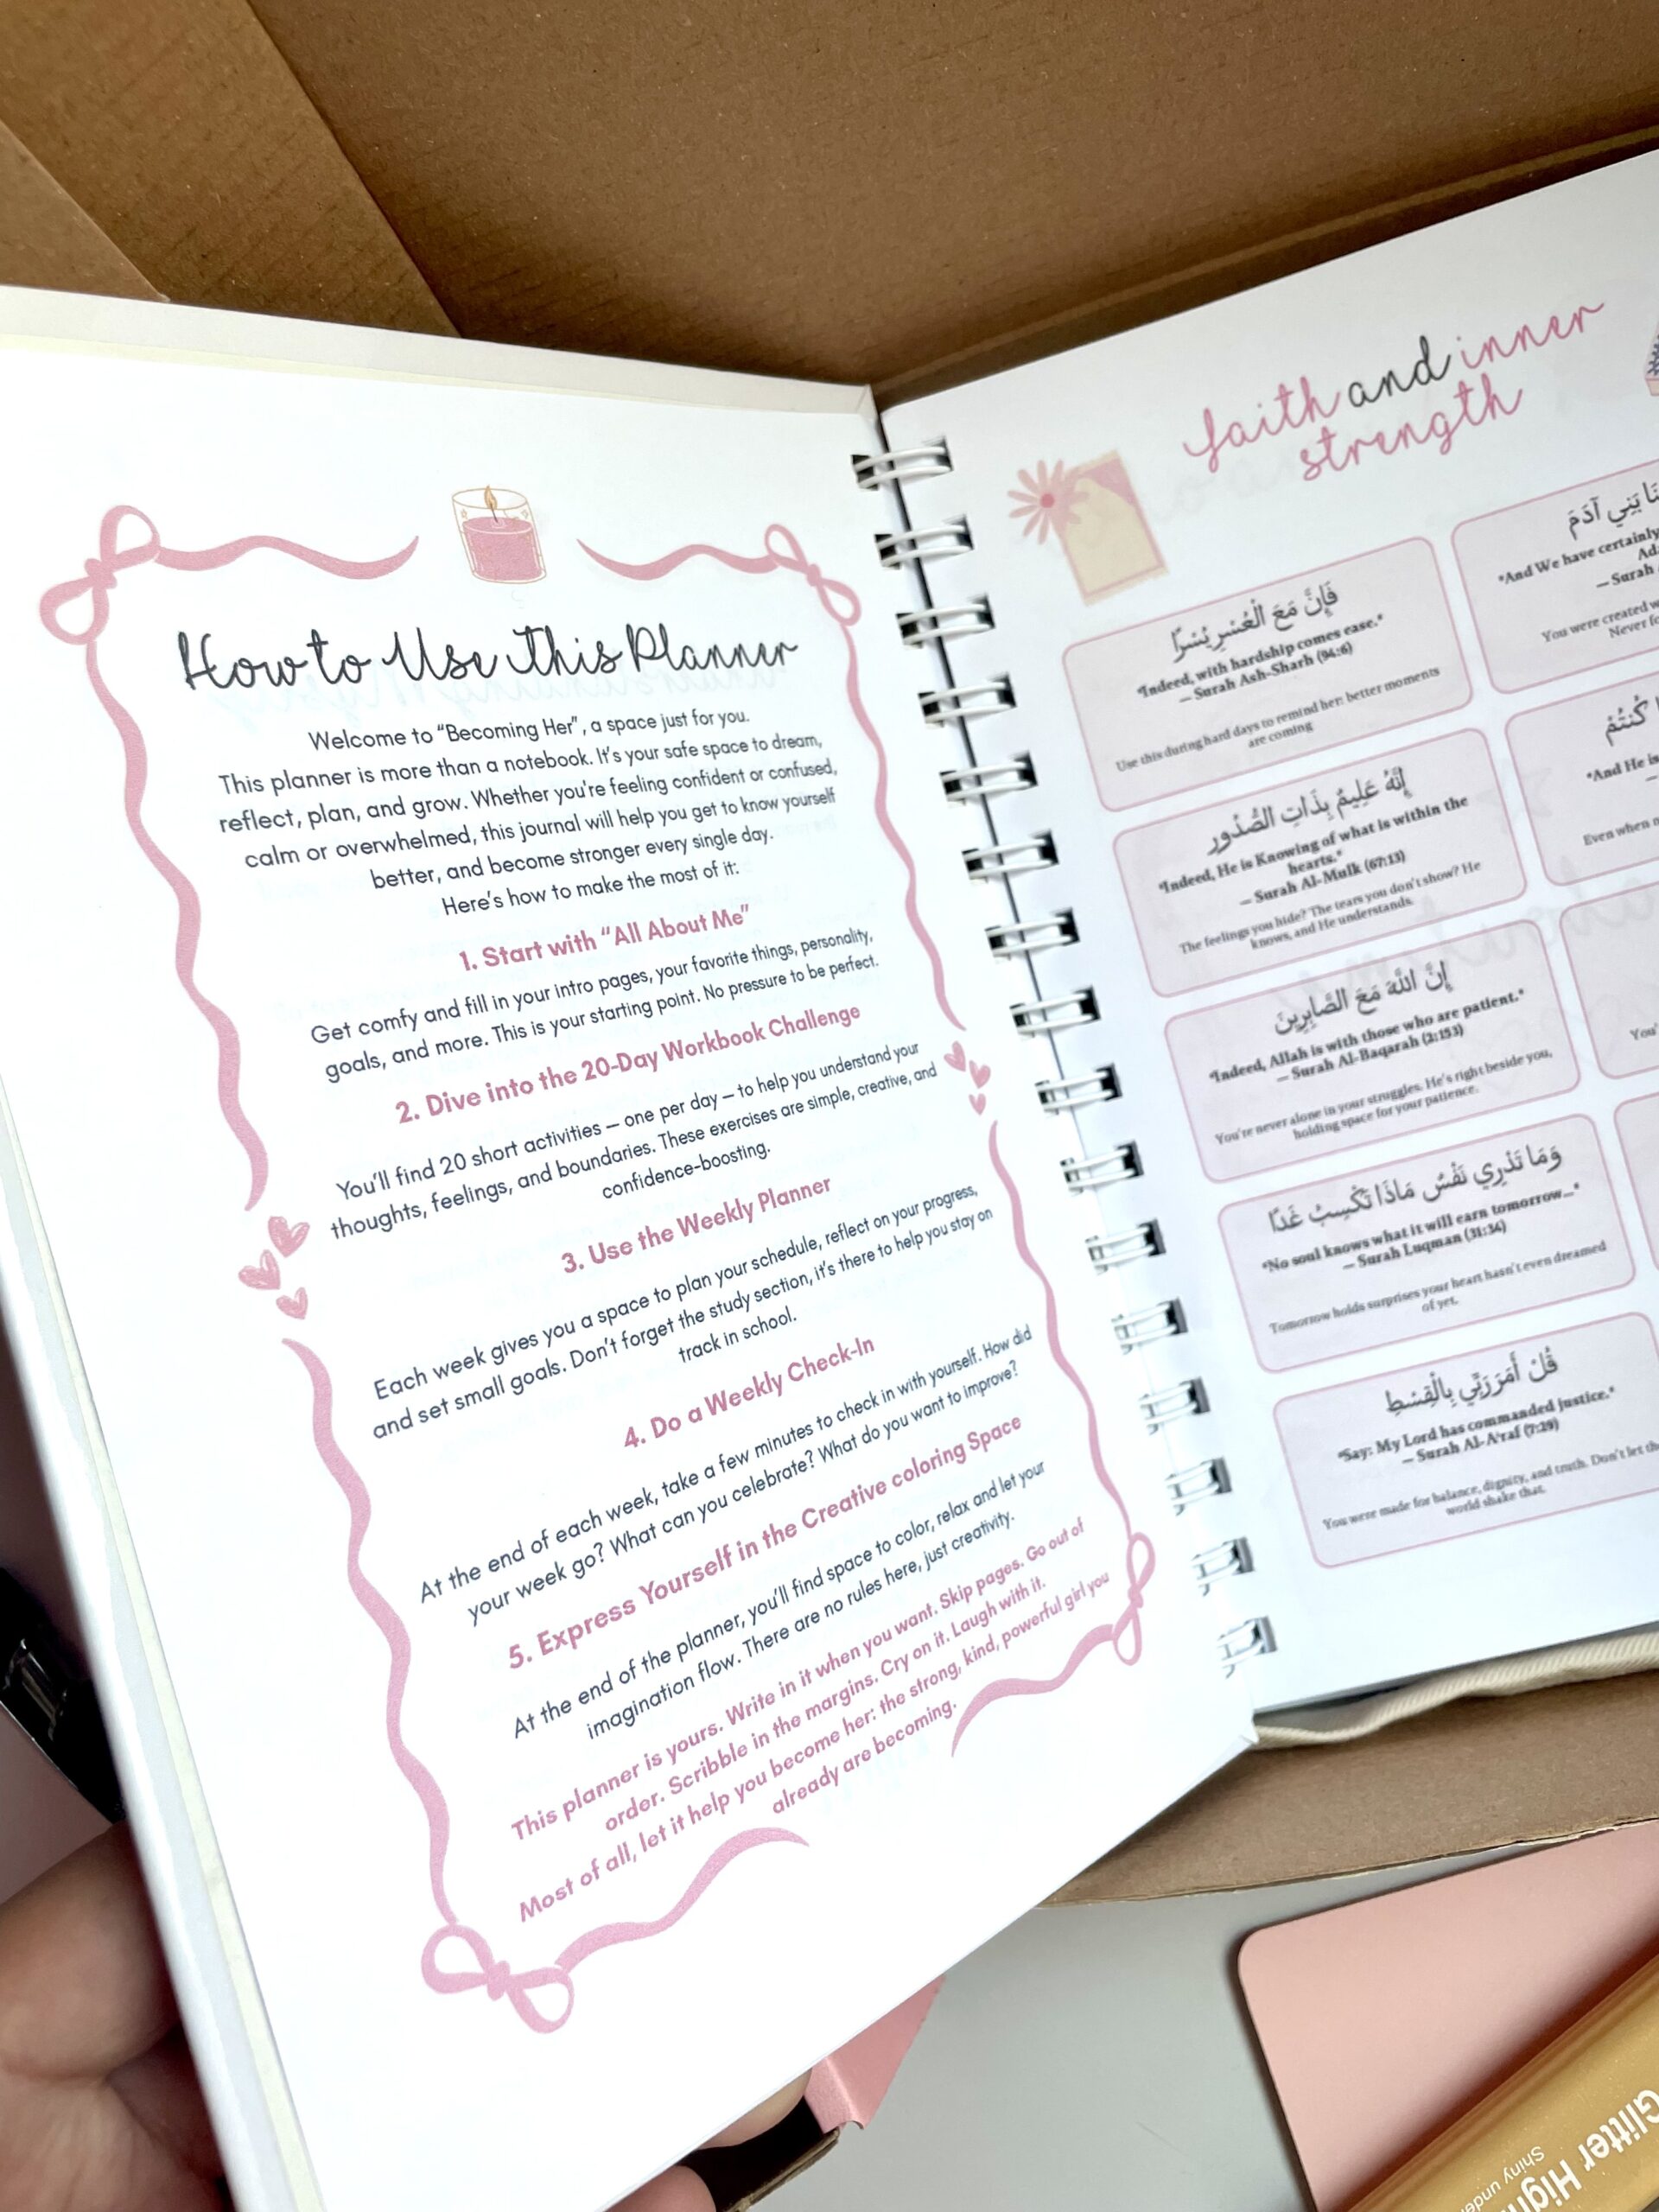 How to Use This Planner
Welcome to “Becoming Her”, a space just for you.
This planner is more than a notebook. It’s your safe space to dream,
reflect, plan, and grow. Whether you’re feeling confident or confused,
calm or overwhelmed, this journal will help you get to know yourself
better, and become stronger every single day.
Here’s how to make the most of it:
1. Start with “All About Me”
Get comfy and fill in your intro pages, your favorite things, personality,
goals, and more. This is your starting point. No pressure to be perfect.
2. Dive into the 20-Day Workbook Challenge
You’ll find 20 short activities — one per day — to help you understand your
thoughts, feelings, and boundaries. These exercises are simple, creative, and
confidence-boosting.
3. Use the Weekly Planner
Each week gives you a space to plan your schedule, reflect on your progress,
and set small goals. Don’t forget the study section, it’s there to help you stay on
track in school.
4. Do a Weekly Check-In
At the end of each week, take a few minutes to check in with yourself. How did
your week go? What can you celebrate? What do you want to improve?
5. Express Yourself in the Creative coloring Space
At the end of the planner, you’ll find space to color, relax and let your
imagination flow. There are no rules here, just creativity.
This planner is yours. Write in it when you want. Skip pages. Go out of
order. Scribble in the margins. Cry on it. Laugh with it.
Most of all, let it help you become her: the strong, kind, powerful girl you
already are becoming.
faith and inner
strength
فَإِنَّ مَعَ الْعُسْرِ يُسْرًا
"Indeed, with hardship comes ease."
— Surah Ash-Sharh (94:6)
Use this during hard days to remind her: better moments
are coming
إِنَّهُ عَلِيمٌ بِذَاتِ الصُّدُورِ
"Indeed, He is Knowing of what is within the
hearts."
— Surah Al-Mulk (67:13)
The feelings you hide? The tears you don't show? He
knows, and He understands.
إِنَّ اللَّهَ مَعَ الصَّابِرِينَ
"Indeed, Allah is with those who are patient."
— Surah Al-Baqarah (2:153)
You're never alone in your struggles. He's right beside you,
holding space for your patience.
وَمَا تَدْرِي نَفْسٌ مَاذَا تَكْسِبُ غَدًا
"No soul knows what it will earn tomorrow..."
— Surah Luqman (31:34)
Tomorrow holds surprises your heart hasn't even dreamed
of yet.
قُلْ أَمَرَ رَبِّي بِالْقِسْطِ
"Say: My Lord has commanded justice."
— Surah Al-A'raf (7:29)
You were made for balance, dignity, and truth. Don't let the
world shake that.
بَنِي آدَمَ
"And We have certainly
— Surah
You were created
Never
كُنتُمْ
"And He is
Even when
You'
Glitter High
Shiny